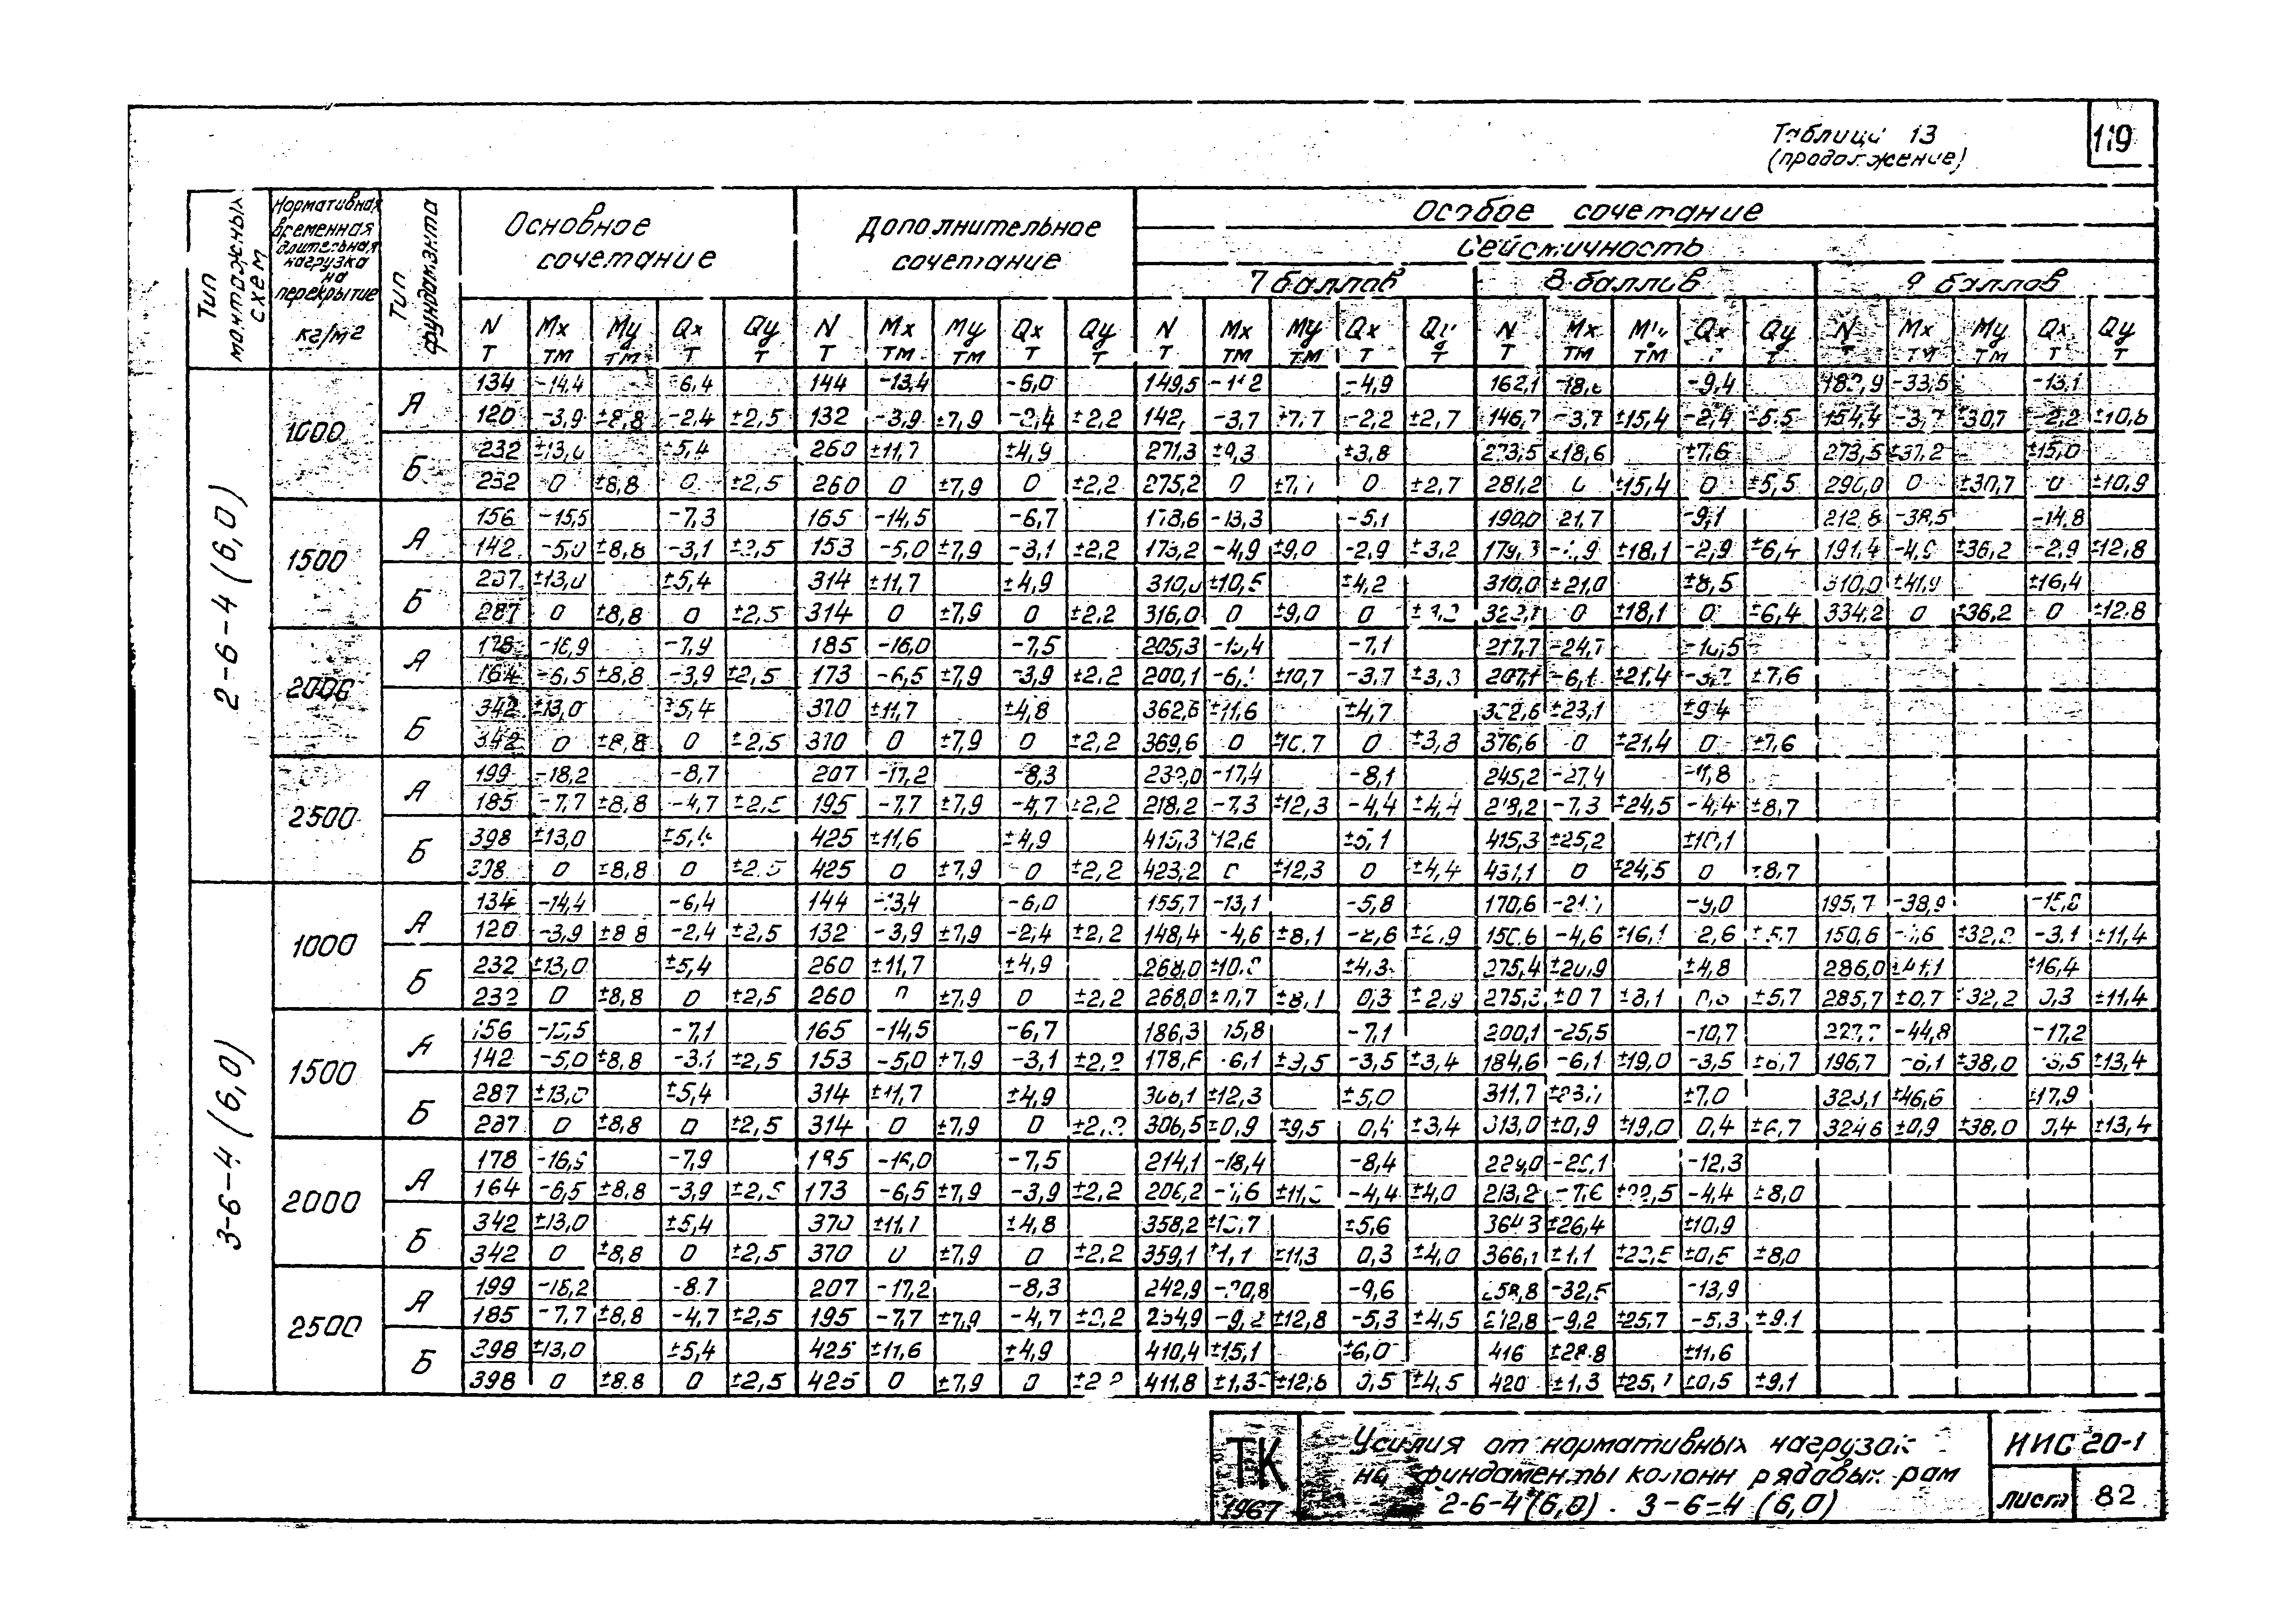 Таблица 13
(продолжение)
119
Тип монтажных схем
Нормативная временная длительная нагрузка на перекрытие кг/м2
Тип фундамента
Основное сочетание
Дополнительное сочетание
Особое сочетание
Сейсмичность
7 баллов 8 баллов 9 баллов
N Mx My Qx Qy N Mx My Qx Qy N Mx My Qx Qy N Mx My Qx Qy N Mx My Qx Qy
т тм тм т т т тм тм т т т тм тм т т т тм тм т т т тм тм т т
2-6-4 (6,0)
1000
А
134 -14,4 -6,4 144 -13,4 -6,0 149,5 -4,9 162,1 -9,4 -33,5 -13,1
120 -3,9 ±8,8 -2,4 ±2,5 132 -3,9 ±7,9 -2,4 ±2,2 -3,7 ±7,7 -2,2 ±2,7 146,7 -3,7 ±15,4 -2,4 ±5,5 154,4 ±30,7 -2,2
Б
232 ±5,4 260 ±11,7 ±4,9 271,3 ±9,3 ±3,8 273,5 ±18,6 ±7,6 273,5 ±37,2 ±15,0
232 0 ±8,8 0 ±2,5 260 0 ±7,9 0 ±2,2 275,2 0 0 ±2,7 281,2 ±15,4 0 ±5,5 0 ±30,7 0 ±10,9
1500
А
156 -15,5 -7,3 165 -14,5 -6,7 178,6 -13,3 -5,1 190,0 21,7 -9,1 212,8 -38,5 -14,8
142 -5,0 ±8,8 -3,1 ±2,5 153 -5,0 ±7,9 -3,1 ±2,2 173,2 -4,9 ±9,0 -2,9 ±3,2 ±18,1 -2,9 ±6,4 191,4 ±36,2 -2,9 ±12,8
Б
±13,0 ±5,4 314 ±11,7 ±4,9 ±10,5 ±4,2 310,0 ±21,0 ±8,5 310,0 ±41,9 ±16,4
287 0 ±8,8 0 ±2,5 314 0 ±7,9 0 ±2,2 316,0 0 ±9,0 0 0 ±18,1 0 ±6,4 334,2 0 ±36,2 0 ±12,8
2000
А
178 -16,9 -7,9 185 -16,0 -7,5 205,3 -7,1 217,7
164 -6,5 ±8,8 -3,9 ±2,5 173 -6,5 ±7,9 -3,9 ±2,2 200,1 ±10,7 -3,7 207,1 -6,1 ±21,4 ±7,6
Б
342 ±13,0 ±5,4 ±11,7 ±4,8 362,6 ±11,6 ±4,7 ±23,1 ±9,4
342 0 ±8,8 0 ±2,5 0 ±7,9 0 ±2,2 369,6 0 ±10,7 0 ±3,8 376,6 0 ±21,4 0 ±7,6
2500
А
199 -18,2 -8,7 207 -17,2 -8,3 -17,4 -8,1 245,2 -27,4 -11,8
185 -7,7 ±8,8 -4,7 ±2,5 195 -7,7 ±7,9 -4,7 ±2,2 218,2 -7,3 ±12,3 -4,4 ±4,4 -7,3 ±24,5 -4,4 ±8,7
Б
398 ±13,0 425 ±11,6 ±4,9 ±5,1 415,3 ±25,2 ±10,1
398 0 ±8,8 0 425 0 ±7,9 0 ±2,2 423,2 ±12,3 0 ±4,4 431,1 0 ±24,5 0 ±8,7
3-6-4 (6,0)
1000
А
134 -14,4 -6,4 144 -13,4 -6,0 155,7 -13,1 -5,8 170,6 -9,0 195,7 -38,9
120 -3,9 ±8,8 -2,4 ±2,5 132 -3,9 ±7,9 -2,4 ±2,2 148,4 -4,6 ±8,1 -2,6 ±2,9 -4,6 ±16,1 2,6 ±5,7 150,6 ±32,2 -3,1 ±11,4
Б
232 ±13,0 ±5,4 260 ±11,7 ±4,9 268,0 ±4,3 275,4 ±20,9 ±4,8 286,0 ±41,1 ±16,4
232 0 ±8,8 0 ±2,5 260 0 ±7,9 0 ±2,2 268,0 ±0,7 ±8,1 0,3 ±2,9 ±0,7 ±8,1 ±5,7 285,7 ±0,7 ±32,2 0,3 ±11,4
1500
А
156 -15,5 -7,1 165 -14,5 -6,7 186,3 15,8 -7,1 200,1 -25,5 -10,7 -44,8 -17,2
142 -5,0 ±8,8 -3,1 ±2,5 153 -5,0 ±7,9 -3,1 ±2,2 178,6 -6,1 ±9,5 -3,5 ±3,4 184,6 -6,1 ±19,0 -3,5 ±6,7 196,7 -6,1 ±38,0 -3,5 ±13,4
Б
287 ±13,0 ±5,4 314 ±11,7 ±4,9 ±12,3 ±5,0 311,7 ±7,0 ±46,6 ±17,9
287 0 ±8,8 0 ±2,5 314 0 ±7,9 0 ±2,2 306,5 ±0,9 ±9,5 0,4 ±3,4 313,0 ±0,9 ±19,0 0,4 ±6,7 324,6 ±0,9 ±38,0 0,4 ±13,4
2000
А
178 -16,9 -7,9 185 -16,0 -7,5 214,1 -18,4 -8,4 -12,3
164 -6,5 ±8,8 -3,9 ±2,5 173 -6,5 ±7,9 -3,9 ±2,2 206,2 -7,6 -4,4 ±4,0 213,2 -7,6 ±22,5 -4,4 ±8,0
Б
342 ±13,0 ±5,4 370 ±4,8 358,2 ±5,6 364,3 ±26,4 ±10,9
342 0 ±8,8 0 ±2,5 370 0 ±7,9 0 ±2,2 359,1 ±1,1 ±11,3 0,3 ±4,0 ±1,1 ±22,5 ±0,5 ±8,0
2500
А
199 -18,2 -8,7 207 -17,2 -8,3 242,9 -20,8 -9,6 258,8 -32,5 -13,9
185 -7,7 ±8,8 -4,7 ±2,5 195 -7,7 ±7,9 -4,7 ±2,2 234,9 -9,2 ±12,8 -5,3 ±4,5 -9,2 ±25,7 -5,3 ±9,1
Б
398 ±13,0 ±5,4 425 ±11,6 ±4,9 410,4 ±15,1 ±6,0 416 ±28,8 ±11,6
398 0 ±8,8 0 ±2,5 425 0 ±7,9 0 ±2,2 411,8 ±1,3 ±12,8 0,5 ±4,5 420 ±1,3 ±0,5 ±9,1
ТК
1967
Усилия от нормативных нагрузок
на фундаменты колонн рядовых рам
2-6-4 (6,0). 3-6-4 (6,0)
ИИС 20-1
лист 82